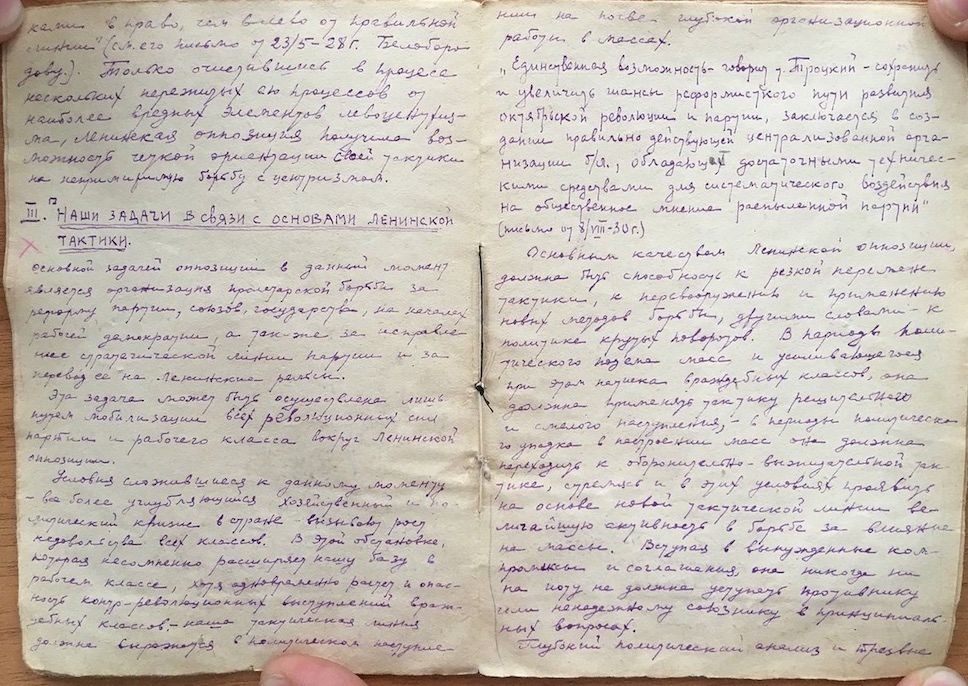 ками "вправо, чем влево от правильной
линии" (см. его письмо от 23/5-28г. Белоборо-
дову.). Только очистившись в процесса
нескольких пережитых ею процессов от
наиболее вредных элементов левоцентриз-
ма, Ленинская оппозиция получила воз-
можность четкой ориентации своей тактики
на непримиримую борьбу с центризмом.
III. Наши задачи в связи с основами ленинской
тактики.
Основной задачей оппозиции в данный момент
является организация пролетарской борьбы за
реформу партии, союзов, государства, на началах
рабочей демократии, а так-же за исправле-
ние стратегической линии партии и за
перевод ее на Ленинские рельсы.
Эта задача может быть осуществлена лишь
путем мобилизации всех революционных сил
партии и рабочего класса вокруг Ленинской
оппозиции.
Условия сложившиеся к данному моменту
- все более углубляющийся хозяйственный и по-
литический кризис в стране - вызывают рост
недовольства всех классов. В этой обстановке,
которая несомненно расширяет нашу базу в
рабочем классе, хотя одновременно растет и опас-
ность контр-революционных выступлений враж-
дебных классов, - наша тактическая линия
должна выражатся в политическом наступле-
нии на основе глубокой организационной
работы в массах.
"Единственная возможность - говорит т. Троцкий - сохранить
и увеличить шансы реформистского пути развития
октябрьской революции и партии, заключается в соз-
дании правильно действующей централизованной орга-
низации б/л., обладающей достаточными техничес-
кими средствами для систематического воздействия
на общественное мнение распыленной партии"
(письмо от 8/VIII-30г.)
Основным качеством Ленинской оппозиции,
должна быть способность к резкой перемене
тактики, к перевооружению и применению
новых методов борьбы, другими словами - к
политике крутых поворотов. В периоды поли-
тического подема масс и усиливающегося
при этом натиска враждебных классов, она
должна применять тактику решительного
и смелого наступления, - в периоды политическо-
го упадка в настроении масс она должна
переходить к оборонительно-выжидательной так-
тике, стремясь и в этих условиях проявить
на основе новой тактической линии ве-
личайшую активность в борьбе за влияние
на массы. Вступая в вынужденные ком-
промисы и соглашения, она никогда ни
на иоту не должна уступать противнику
или ненадежному союзнику в принципиаль-
ных вопросах.
Глубокий политический анализ и трезвые